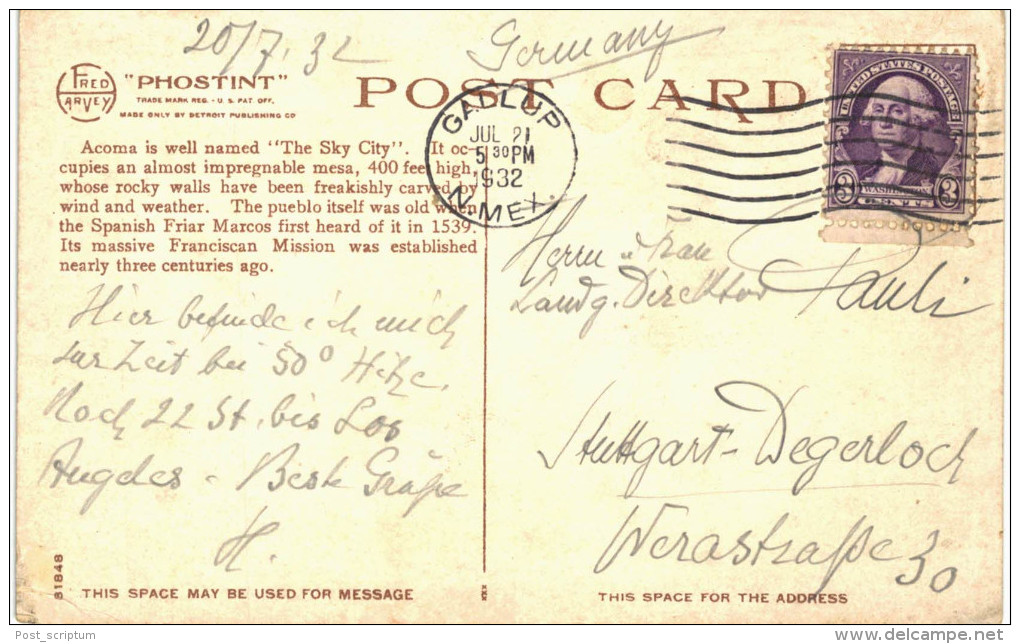 20/7.32
Germany
FRED HARVEY
"PHOSTINT"
TRADE MARK REG. - U. S. PAT. OFF.
MADE ONLY BY DETROIT PUBLISHING CO
POST CARD
GALLUP
JUL 21
5 30 PM
1932
N. MEX.
UNITED STATES POSTAGE
3 WASHINGTON 3
Acoma is well named "The Sky City". It oc-
cupies an almost impregnable mesa, 400 feet high,
whose rocky walls have been freakishly carved by
wind and weather. The pueblo itself was old when
the Spanish Friar Marcos first heard of it in 1539.
Its massive Franciscan Mission was established
nearly three centuries ago.
Hier befinde ich mich
zur Zeit bei 50° Hitze.
Noch 22 St. bis Los
Angeles - Beste Grüße
H.
Herrn u Frau
Landg. Direktor Pauli
Stuttgart-Degerloch
Werastraße 30
81848
THIS SPACE MAY BE USED FOR MESSAGE
THIS SPACE FOR THE ADDRESS
Post_scriptum
delcampe.net